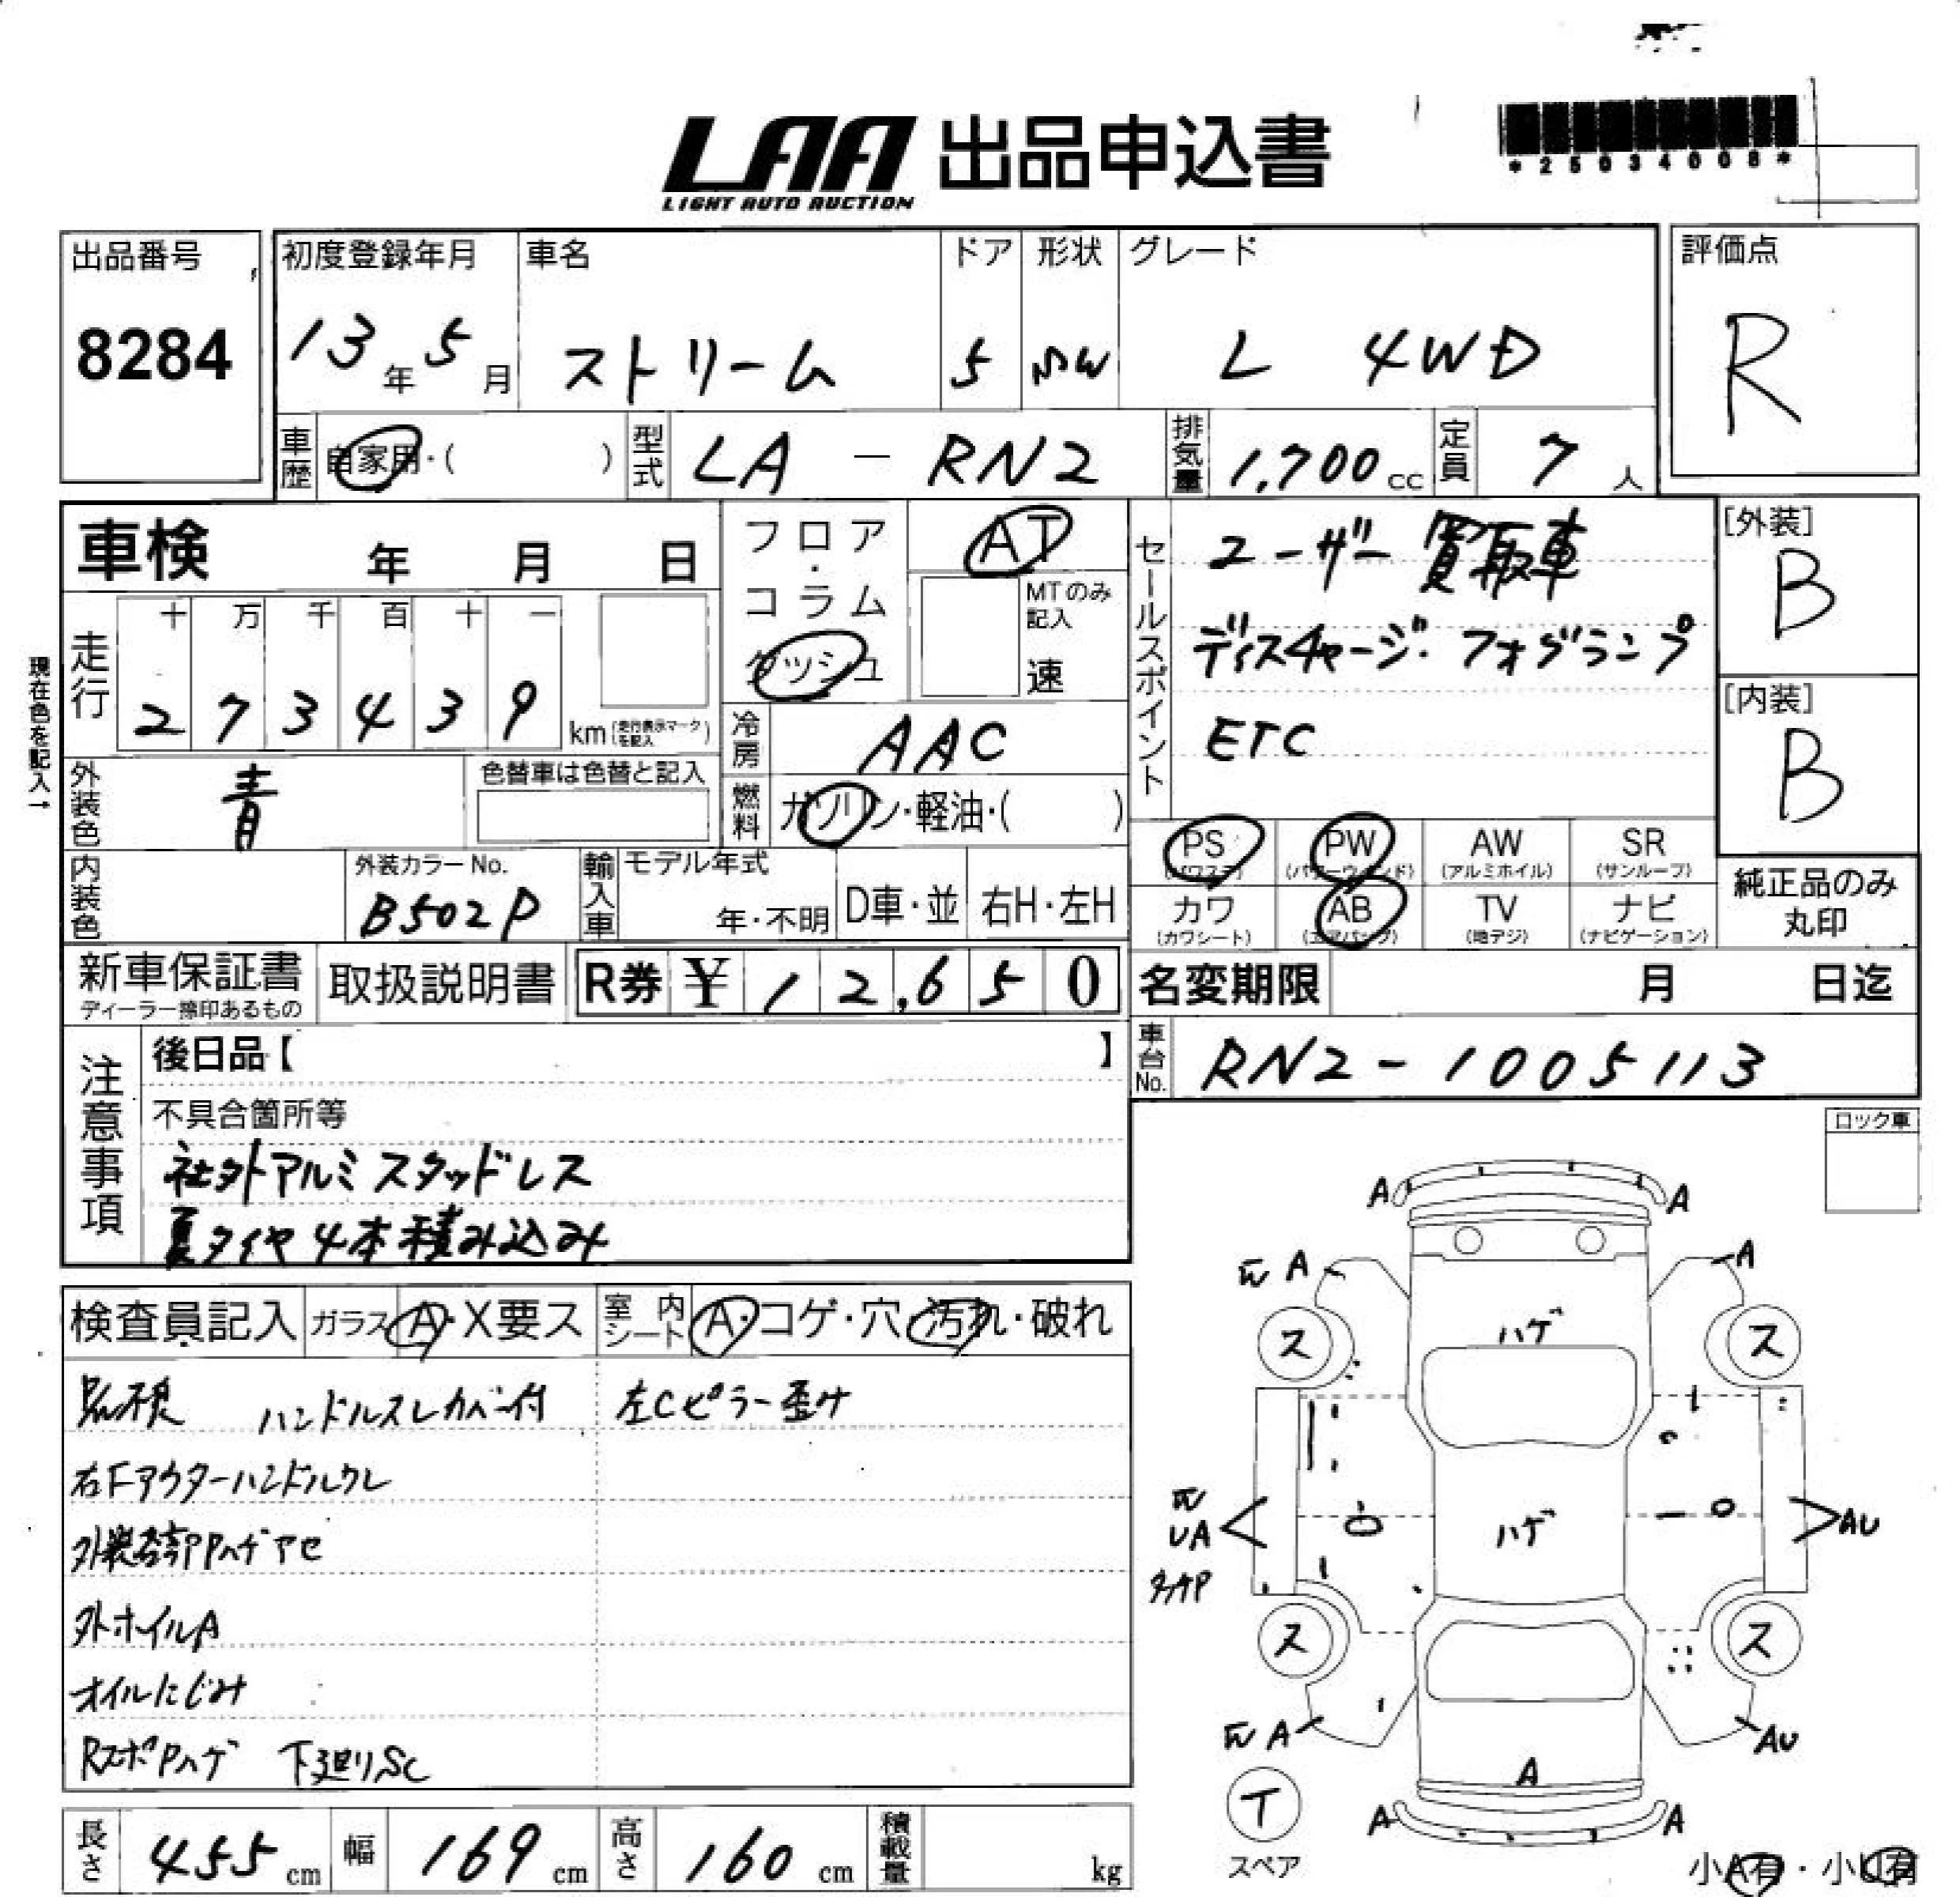 LAA 出品申込書
LIGHT AUTO AUCTION
*25034008*
出品番号
8284
初度登録年月
13年5月
車名
ストリーム
ドア
5
形状
グレード
L 4WD
評価点
R
車歴 自家用・( )
型式 LA - RN2
排気量 1,700cc
定員 7人
車検 年 月 日
フロア・コラム ダッシュ
AT
MTのみ記入
速
セールスポイント
ユーザー買取車
ディスチャージ・フォグランプ
ETC
[外装]
B
[内装]
B
現在色を記入→
走行
十 万 千 百 十 一
2 7 3 4 3 9 km(走行表示マークを記入)
冷房 AAC
燃料 ガソリン・軽油・( )
外装色 青
色替車は色替と記入
内装色
外装カラーNo.
B502P
輸入車
モデル年式
年・不明
D車・並
右H・左H
PS (パワステ)
PW (パワーウィンド)
AW (アルミホイル)
SR (サンルーフ)
カワ (カワシート)
AB (エアバッグ)
TV (地デジ)
ナビ (ナビゲーション)
純正品のみ丸印
新車保証書
ディーラー捺印あるもの
取扱説明書
R券 ¥ 12,650
名変期限 月 日迄
車台No. RN2-1005113
注意事項
後日品【 】
不具合箇所等
社外アルミスタッドレス
夏タイヤ4本積み込み
ロック車
検査員記入
ガラス A・X要ス
室内シート A・コゲ・穴・汚れ・破れ
ハンドルスレカバー付
左Cピラー歪み
右Fアウターハンドルワレ
外ホイルA
オイルにじみ
RスポPハゲ 下廻りSC
A A
A A
ス ハゲ ス
UA ハゲ AU
ス ス
A AU
A
A A
T
スペア
小A有・小U有
長さ 455cm
幅 169cm
高さ 160cm
積載量 kg